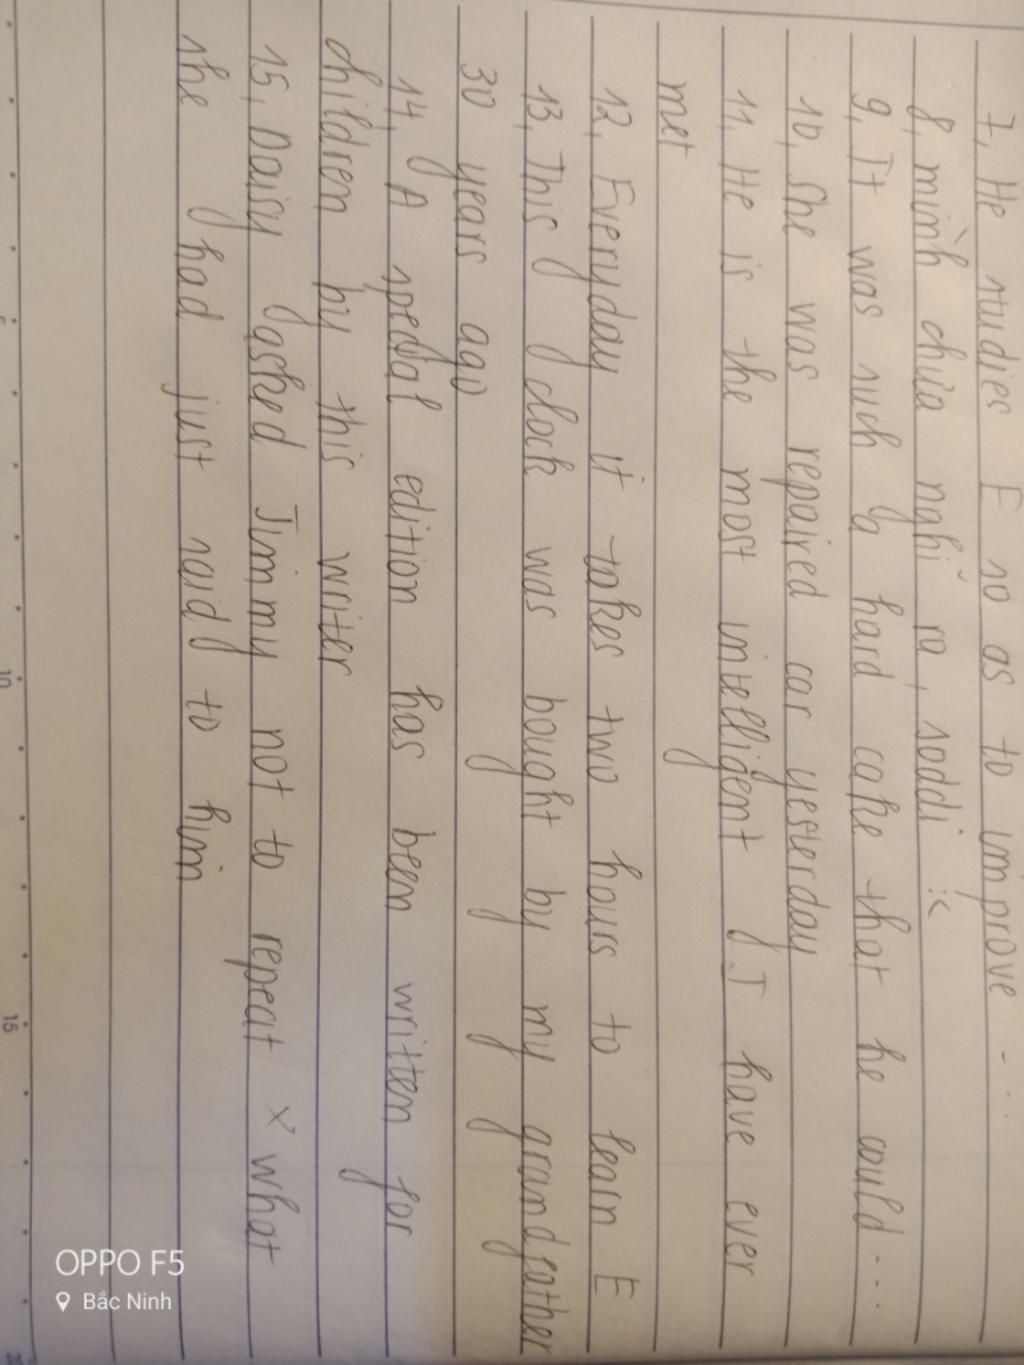 7, He studies E so as to improve - ...
8, mình chưa nghĩ ra, soddi :<
9, It was such a hard cake that he could ...
10, She was repaired car yesterday
11, He is the most intelligent I have ever
met
12, Everyday it takes two hours to learn E
13, This clock was bought by my grandfather
30 years ago
14, A spedal edition has been written for
children by this writer
15, Daisy asked Jimmy not to repeat x what
she had just said to him
OPPO F5
Bắc Ninh
10
15